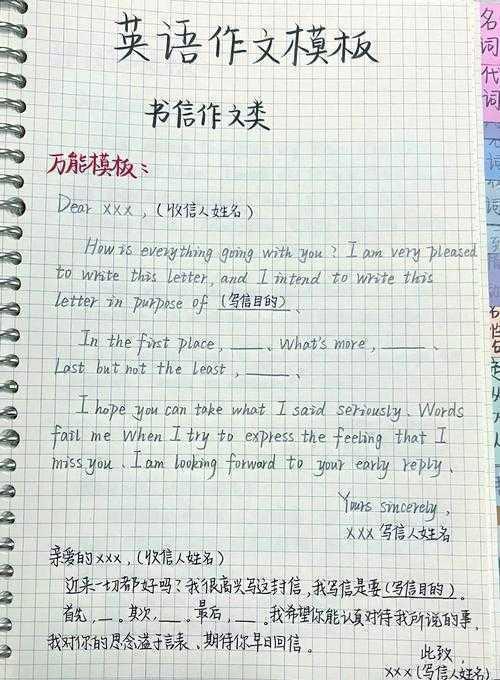 英语作文模板
书信作文类
万能模板：
Dear xxx，(收信人姓名)
How is everything going with you? I am very pleased
to write this letter, and I intend to write this
letter in purpose of (写信目的)、
In the first place, ___、What's more, ___、
Last but not the least, ___、
I hope you can take what I said seriously、Words
fail me when I try to express the feeling that I
miss you、I am looking forward to your early reply、
Yours sincerely,
xxx 写信人姓名
亲爱的xxx，(收信人姓名)
近来一切都好吗？我很高兴写这封信，我写信是要(写信目的)。
首先，__。其次，__。最后，__。我希望你能认真对待我所说的事，
我对你的思念溢于言表、期待你早日回信。
此致，
xxx(写信人姓名)
名
词
代
词